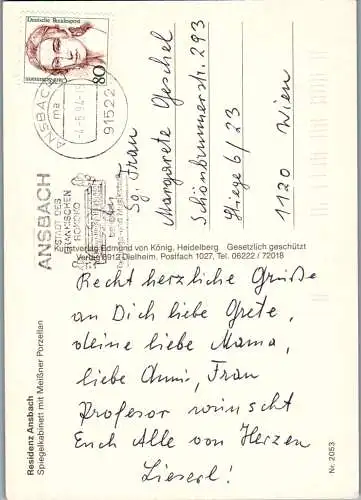 Deutsche Bundespost
80
ANSBACH
ma
-4.-6.94-15
91522
ANSBACH
STADT DES
FRÄNKISCHEN
ROKOKO
Sg. Frau
Margarete Geschel
Schönbrunnerstr. 293
Stiege 6/23
1120 Wien
Kunstverlag Edmond von König, Heidelberg Gesetzlich geschützt
Verlag 6912 Dielheim, Postfach 1027, Tel. 06222 / 72018
Recht herzliche Grüße
an Dich liebe Grete,
deine liebe Mama,
liebe Anni, Frau
Profesor wünscht
Euch Alle von Herzen
Lieserl!
Residenz Ansbach
Spiegelkabinett mit Meißner Porzellan
Nr. 2053